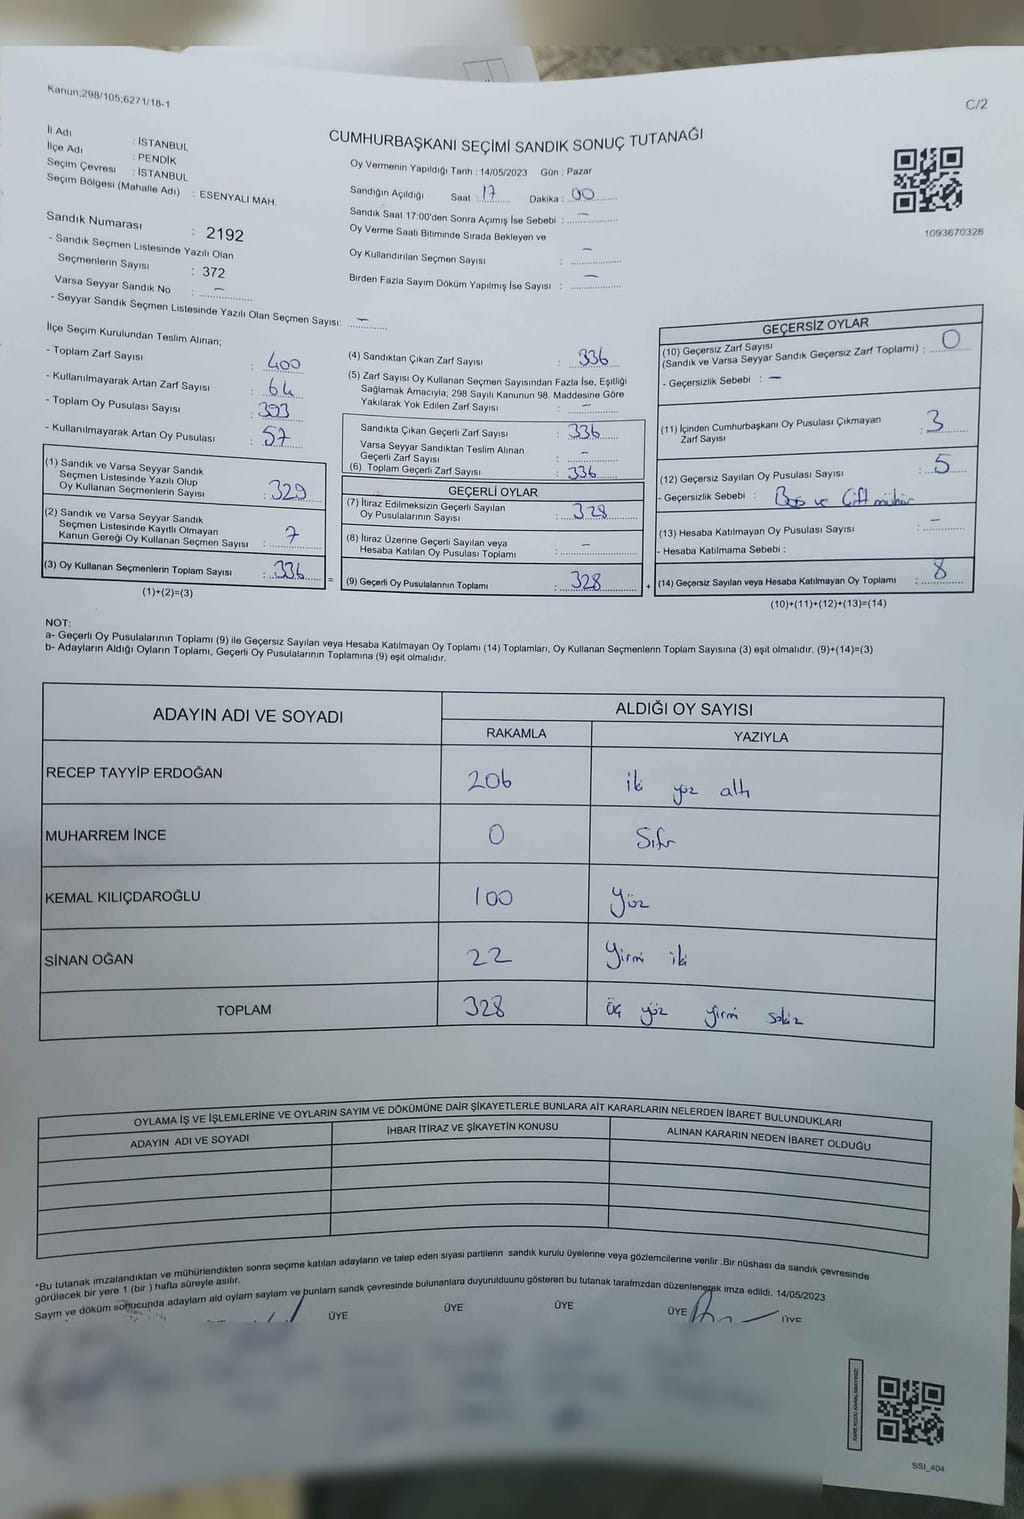 Kanun;298/105;6271/18-1
C/2
CUMHURBAŞKANI SEÇİMİ SANDIK SONUÇ TUTANAĞI
İl Adı : İSTANBUL
İlçe Adı : PENDİK
Seçim Çevresi : İSTANBUL
Seçim Bölgesi (Mahalle Adı) : ESENYALI MAH.
Oy Vermenin Yapıldığı Tarih : 14/05/2023 Gün : Pazar
Sandığın Açıldığı Saat : 17 Dakika : 00
Sandık Saat 17:00'den Sonra Açımış İse Sebebi : –
Oy Verme Saati Bitiminde Sırada Bekleyen ve
Oy Kullandırılan Seçmen Sayısı : –
Birden Fazla Sayım Döküm Yapılmış İse Sayısı : –
1093670326
Sandık Numarası : 2192
- Sandık Seçmen Listesinde Yazılı Olan
Seçmenlerin Sayısı : 372
Varsa Seyyar Sandık No : –
- Seyyar Sandık Seçmen Listesinde Yazılı Olan Seçmen Sayısı: –
İlçe Seçim Kurulundan Teslim Alınan;
- Toplam Zarf Sayısı : 400
- Kullanılmayarak Artan Zarf Sayısı : 64
- Toplam Oy Pusulası Sayısı : 393
- Kullanılmayarak Artan Oy Pusulası : 57
(1) Sandık ve Varsa Seyyar Sandık
Seçmen Listesinde Yazılı Olup
Oy Kullanan Seçmenlerin Sayısı : 329
(2) Sandık ve Varsa Seyyar Sandık
Seçmen Listesinde Kayıtlı Olmayan
Kanun Gereği Oy Kullanan Seçmen Sayısı : 7
(3) Oy Kullanan Seçmenlerin Toplam Sayısı : 336 =
(1)+(2)=(3)
(4) Sandıktan Çıkan Zarf Sayısı : 336
(5) Zarf Sayısı Oy Kullanan Seçmen Sayısından Fazla İse, Eşitliği
Sağlamak Amacıyla; 298 Sayılı Kanunun 98. Maddesine Göre
Yakılarak Yok Edilen Zarf Sayısı : –
Sandıkta Çıkan Geçerli Zarf Sayısı : 336
Varsa Seyyar Sandıktan Teslim Alınan
Geçerli Zarf Sayısı : –
(6) Toplam Geçerli Zarf Sayısı : 336
GEÇERLİ OYLAR
(7) İtiraz Edilmeksizin Geçerli Sayılan
Oy Pusulalarının Sayısı : 328
(8) İtiraz Üzerine Geçerli Sayılan veya
Hesaba Katılan Oy Pusulası Toplamı : –
(9) Geçerli Oy Pusulalarının Toplamı : 328 +
GEÇERSİZ OYLAR
(10) Geçersiz Zarf Sayısı
(Sandık ve Varsa Seyyar Sandık Geçersiz Zarf Toplamı) : 0
- Geçersizlik Sebebi : –
(11) İçinden Cumhurbaşkanı Oy Pusulası Çıkmayan
Zarf Sayısı : 3
(12) Geçersiz Sayılan Oy Pusulası Sayısı : 5
- Geçersizlik Sebebi : Boş ve Çift mühür
(13) Hesaba Katılmayan Oy Pusulası Sayısı : –
- Hesaba Katılmama Sebebi :
(14) Geçersiz Sayılan veya Hesaba Katılmayan Oy Toplamı : 8
(10)+(11)+(12)+(13)=(14)
NOT:
a- Geçerli Oy Pusulalarının Toplamı (9) ile Geçersiz Sayılan veya Hesaba Katılmayan Oy Toplamı (14) Toplamları, Oy Kullanan Seçmenlerin Toplam Sayısına (3) eşit olmalıdır. (9)+(14)=(3)
b- Adayların Aldığı Oyların Toplamı, Geçerli Oy Pusulalarının Toplamına (9) eşit olmalıdır.
ADAYIN ADI VE SOYADI ALDIĞI OY SAYISI
RAKAMLA YAZIYLA
RECEP TAYYİP ERDOĞAN 206 iki yüz altı
MUHARREM İNCE 0 Sıfır
KEMAL KILIÇDAROĞLU 100 Yüz
SİNAN OĞAN 22 Yirmi iki
TOPLAM 328 Üç yüz yirmi sekiz
OYLAMA İŞ VE İŞLEMLERİNE VE OYLARIN SAYIM VE DÖKÜMÜNE DAİR ŞİKAYETLERLE BUNLARA AİT KARARLARIN NELERDEN İBARET BULUNDUKLARI
ADAYIN ADI VE SOYADI İHBAR İTİRAZ VE ŞİKAYETİN KONUSU ALINAN KARARIN NEDEN İBARET OLDUĞU
*Bu tutanak imzalandıktan ve mühürlendikten sonra seçime katılan adayların ve talep eden siyasi partilerin sandık kurulu üyelerine veya gözlemcilerine verilir .Bir nüshası da sandık çevresinde
görülecek bir yere 1 (bir ) hafta süreyle asılır.
Saym ve döküm sonucunda adaylarn ald oylarn saylarn ve bunlarn sandk çevresinde bulunanlara duyurulduunu gösteren bu tutanak tarafmzdan düzenlenerek imza edildi. 14/05/2023
ÜYE ÜYE ÜYE ÜYE ÜYE
SSI_404